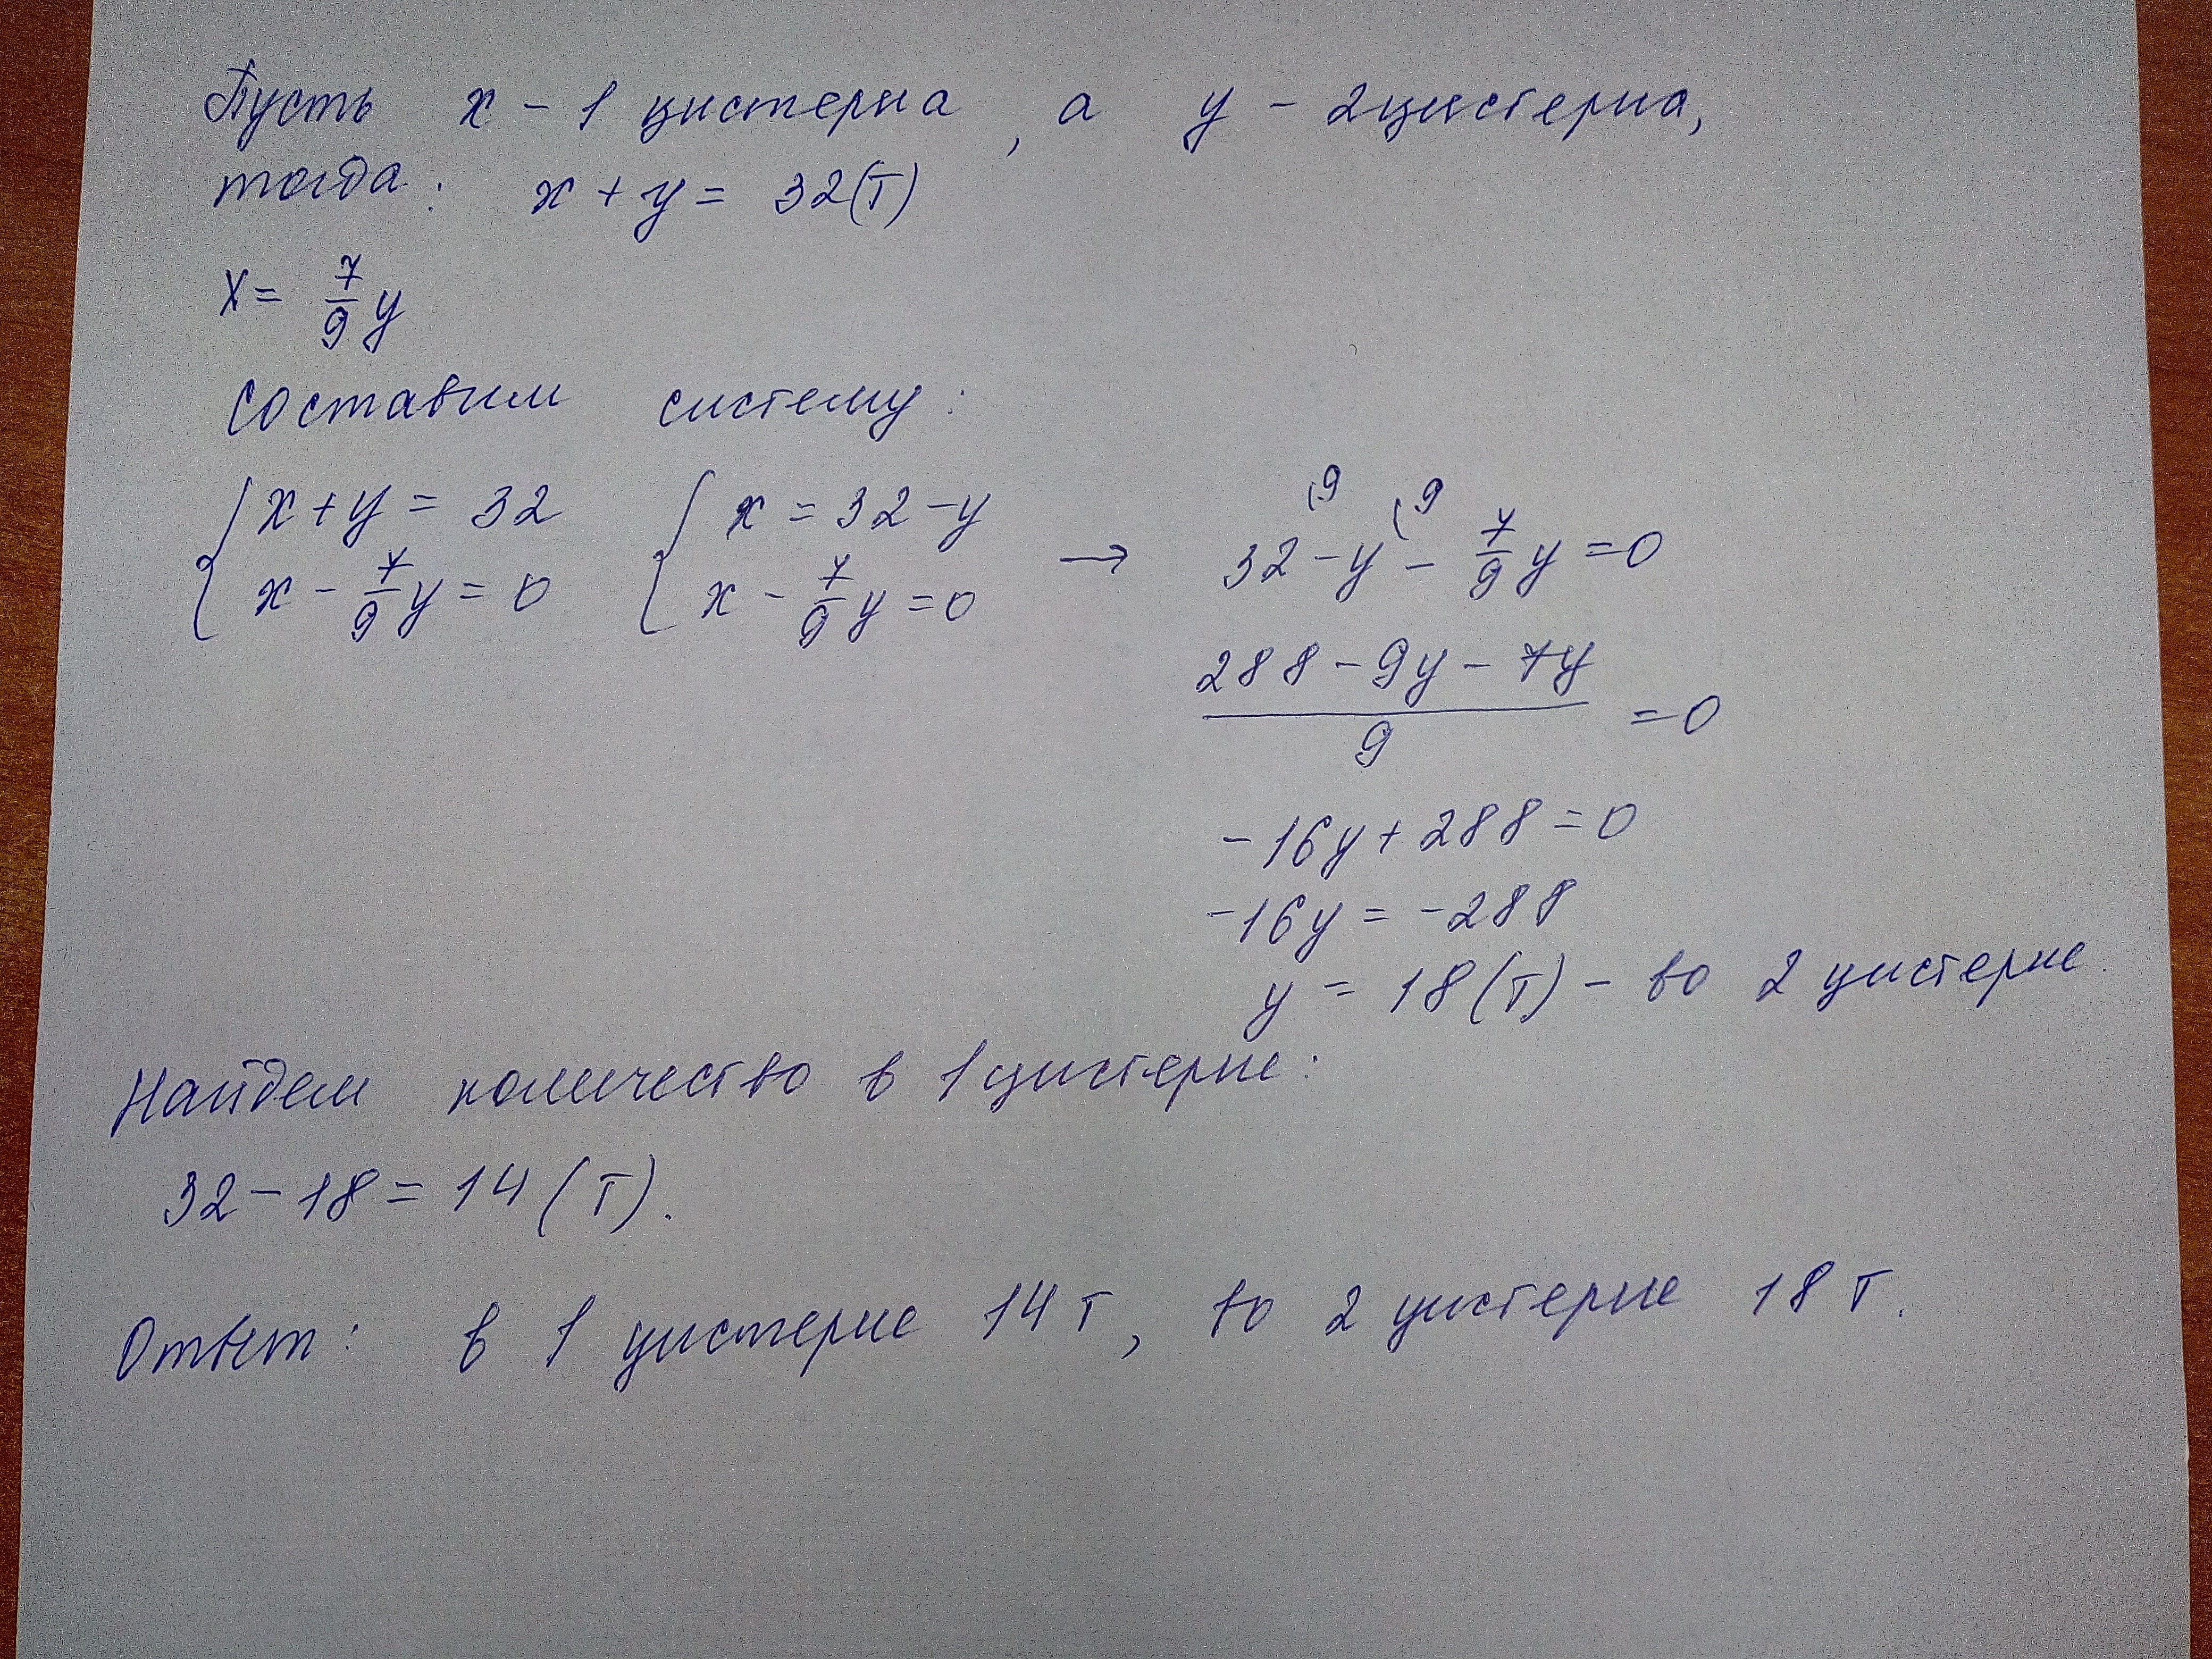 Пусть x - 1 цистерна, а y - 2цистерна,
тогда: x + y = 32(т)
x = 7/9 y
Составим систему:
{ x + y = 32 { x = 32 - y → 32 (9 - y (9 - 7/9 y = 0
{ x - 7/9 y = 0 { x - 7/9 y = 0
(288 - 9y - 7y)/9 = 0
-16y + 288 = 0
-16y = -288
y = 18(т) - во 2 цистерне.
Найдем количество в 1 цистерне:
32 - 18 = 14 (т).
Ответ: в 1 цистерне 14 т, во 2 цистерне 18 т.